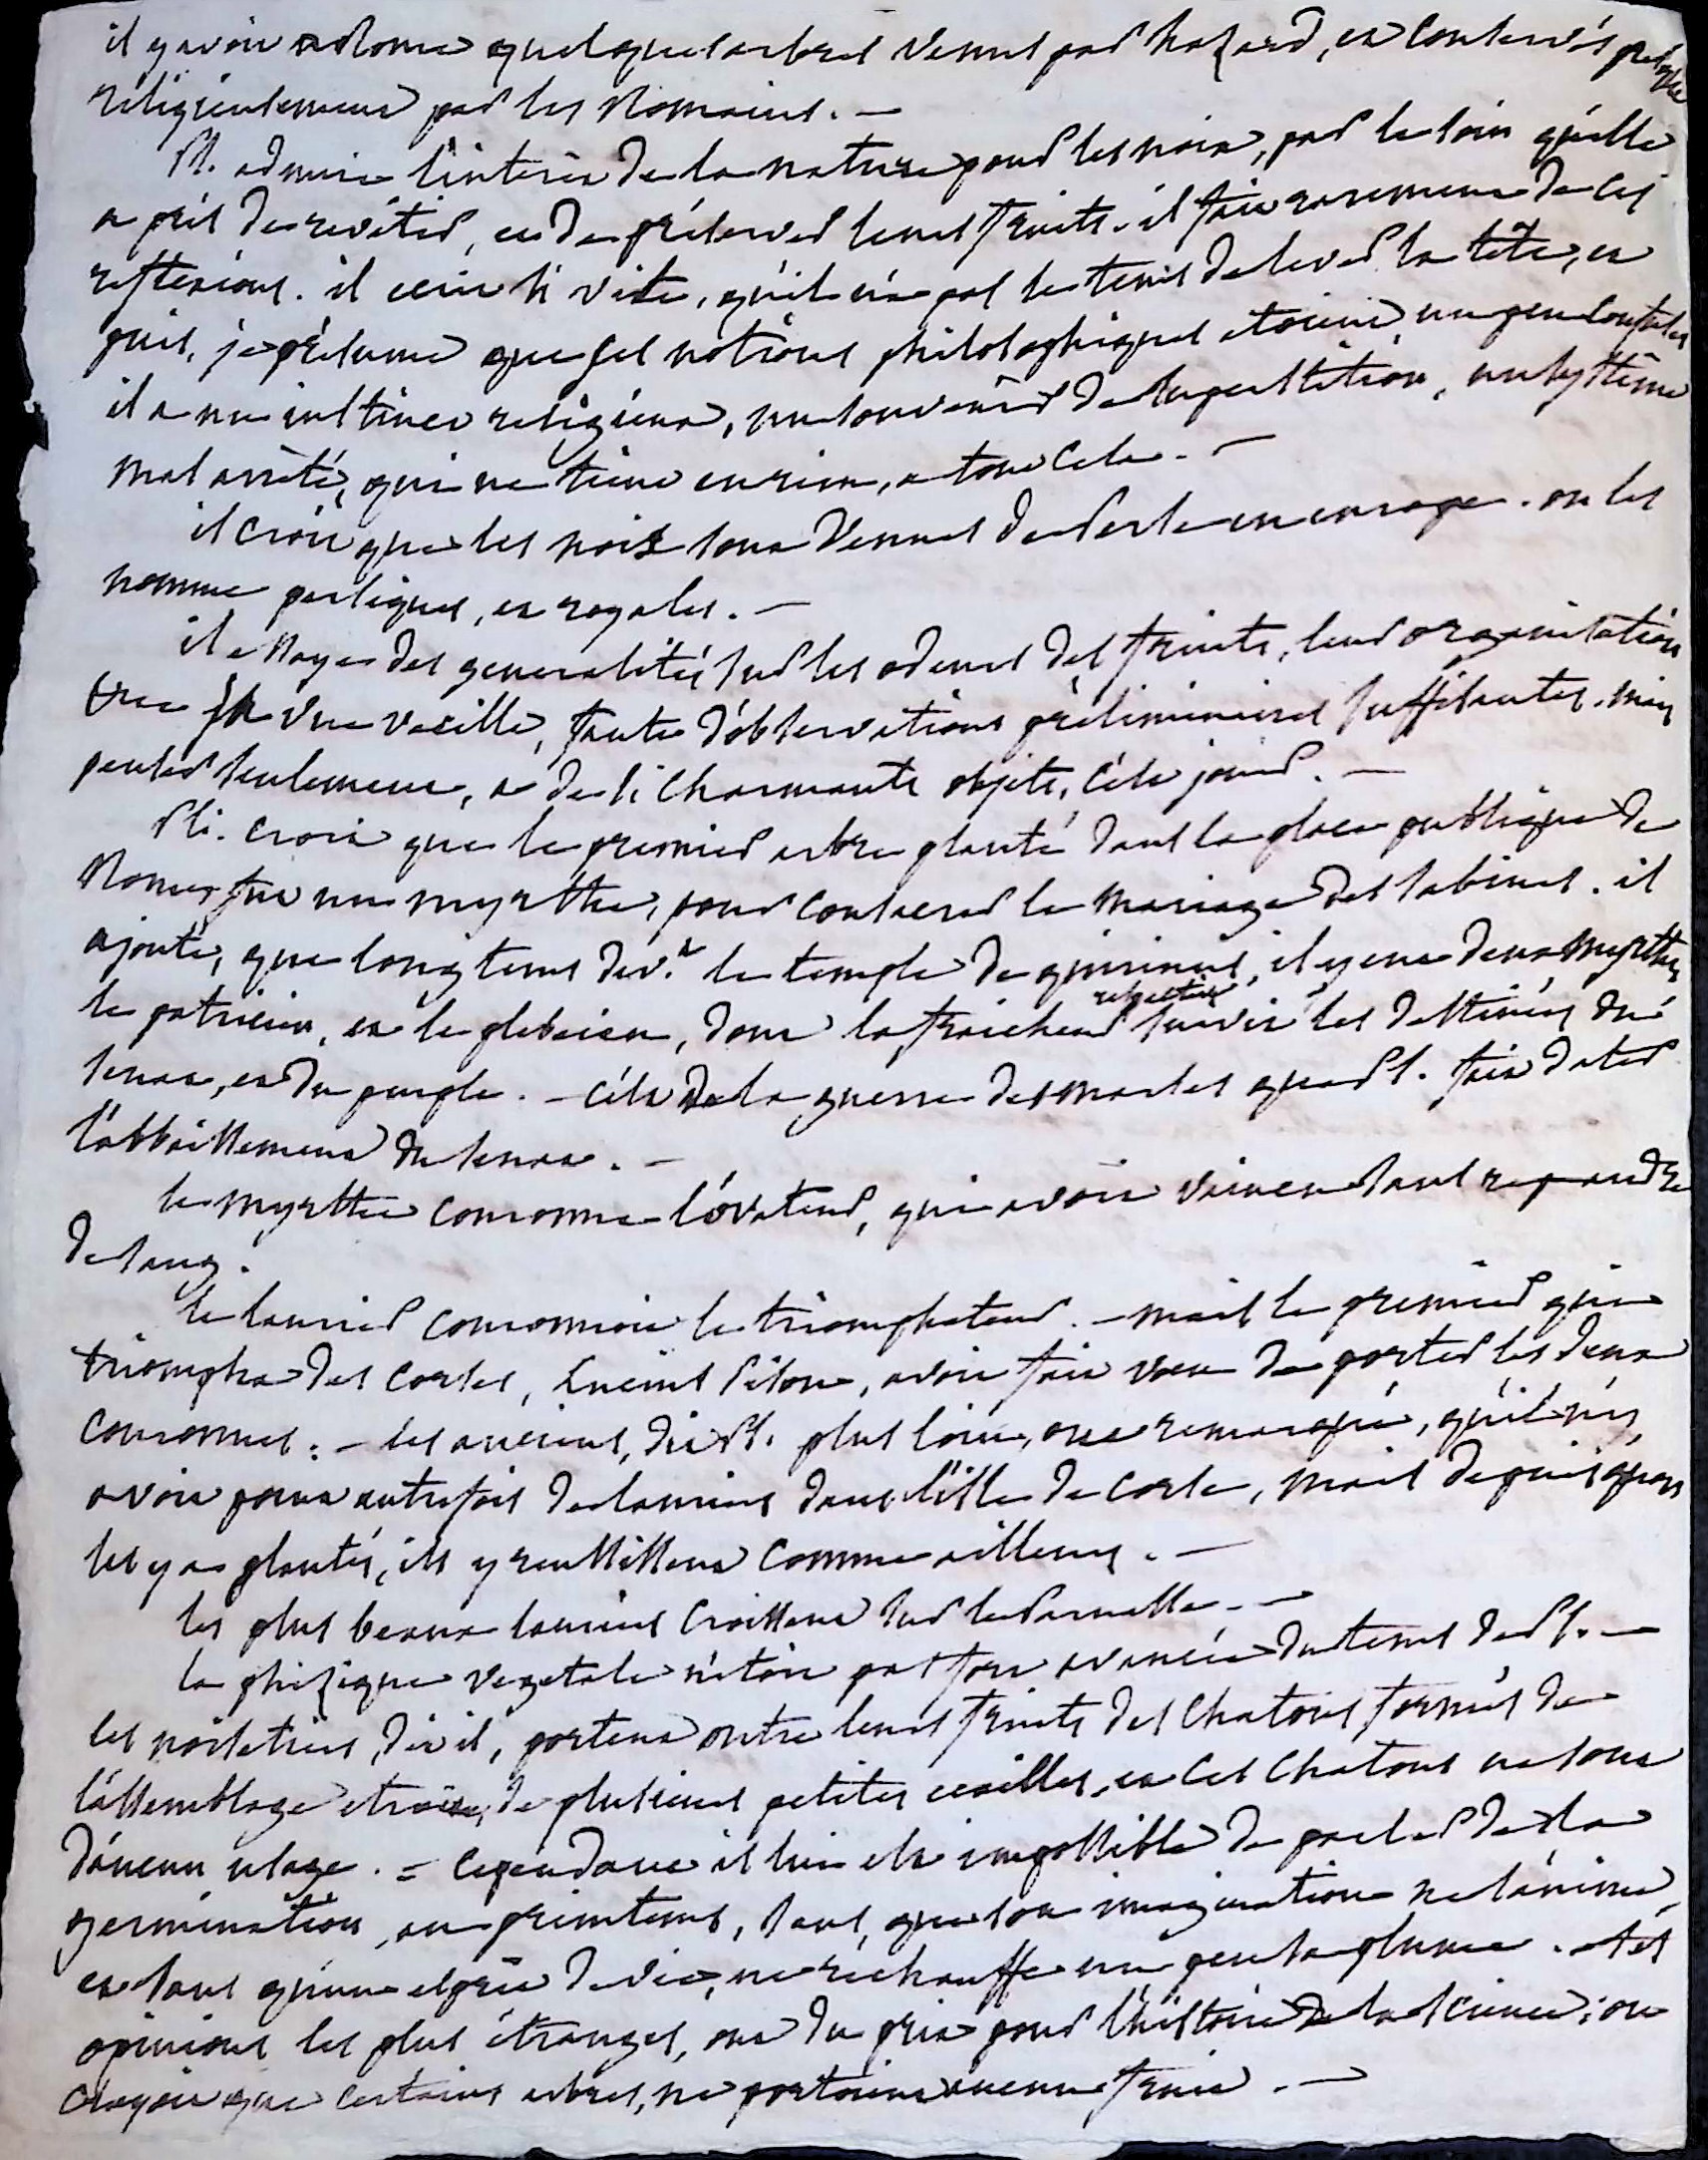 il y avoit a Rome quelques arbres venus par hazard, et conservés presque
religieusement par les Romains. —
Pl. admire l'interêt de la nature pour les noix, par le soin qu'elle
a pris de revêtir, et de préserver leurs fruits. il fait rarement de ces
reflexions. il ecrit si vite, qu'il n'a pas le tems de lever la tête, et
puis, je présume que ses notions philosophiques etoient un peu confuses
il a un instinct religieux, un souvenir de superstition, un systême
mal arrêté, qui ne tient en rien, a tout cela. —
il croit que les noix sont venues de Perse en . on les
nomme persiques, et royales. —
il essaye des generalités sur les odeurs des fruits, leur organisation
 vacille, faute d'observations préliminaires suffisantes. mais
penser seulement, a de si charmants objets, c'est jouir. —
Pli. croit que le premier arbre planté dans la place publique de
Rome fut un myrthe, pour consacrer le mariage des sabines. il
ajoute, que longtems dev.t le temple de quirinus, il y eut deux myrthes
le patricien, et le plebeien, dont la fraicheur respective suivit les destinées du
senat, et du peuple. — c'est de la guerre des marses que Pl. fait dater
l'abbaissement du senat. —
le myrthe couronne l'ovateur, qui avoit vaincu sans repandre
de sang.
le laurier couronnoit le triomphateur. — mais le premier qui
triompha des corses, Pison, avoit fait voeu de porter les deux
couronnes. — les anciens, dit Pl. plus loin, ont remarqué, qu'il n'y
avoit point autrefois de lauriers dans l'isle de corse, mais depuis qu'on
les y a plantés, ils y reussissent comme ailleurs. —
les plus beaux lauriers croissent sur le Parnasse. —
la phizique vegetale n'etoit pas fort avancée du tems de Pl. —
les noisetiers, dit il, portent outre leurs fruits des chatons formés de
l'assemblage etroit, de plusieurs petites ecailles, et ces chatons ne sont
d'aucun usage. = cependant il lui est impossible de parler de la
germination, au printems, sans, que son imagination ne s'anime,
et sans qu'un esprit de vie, ne rechauffe un peu sa plume. — les
opinions les plus étranges, ont du prix pour l'histoire de la science; on
croyoit que certains arbres, ne portoient aucun fruit. —